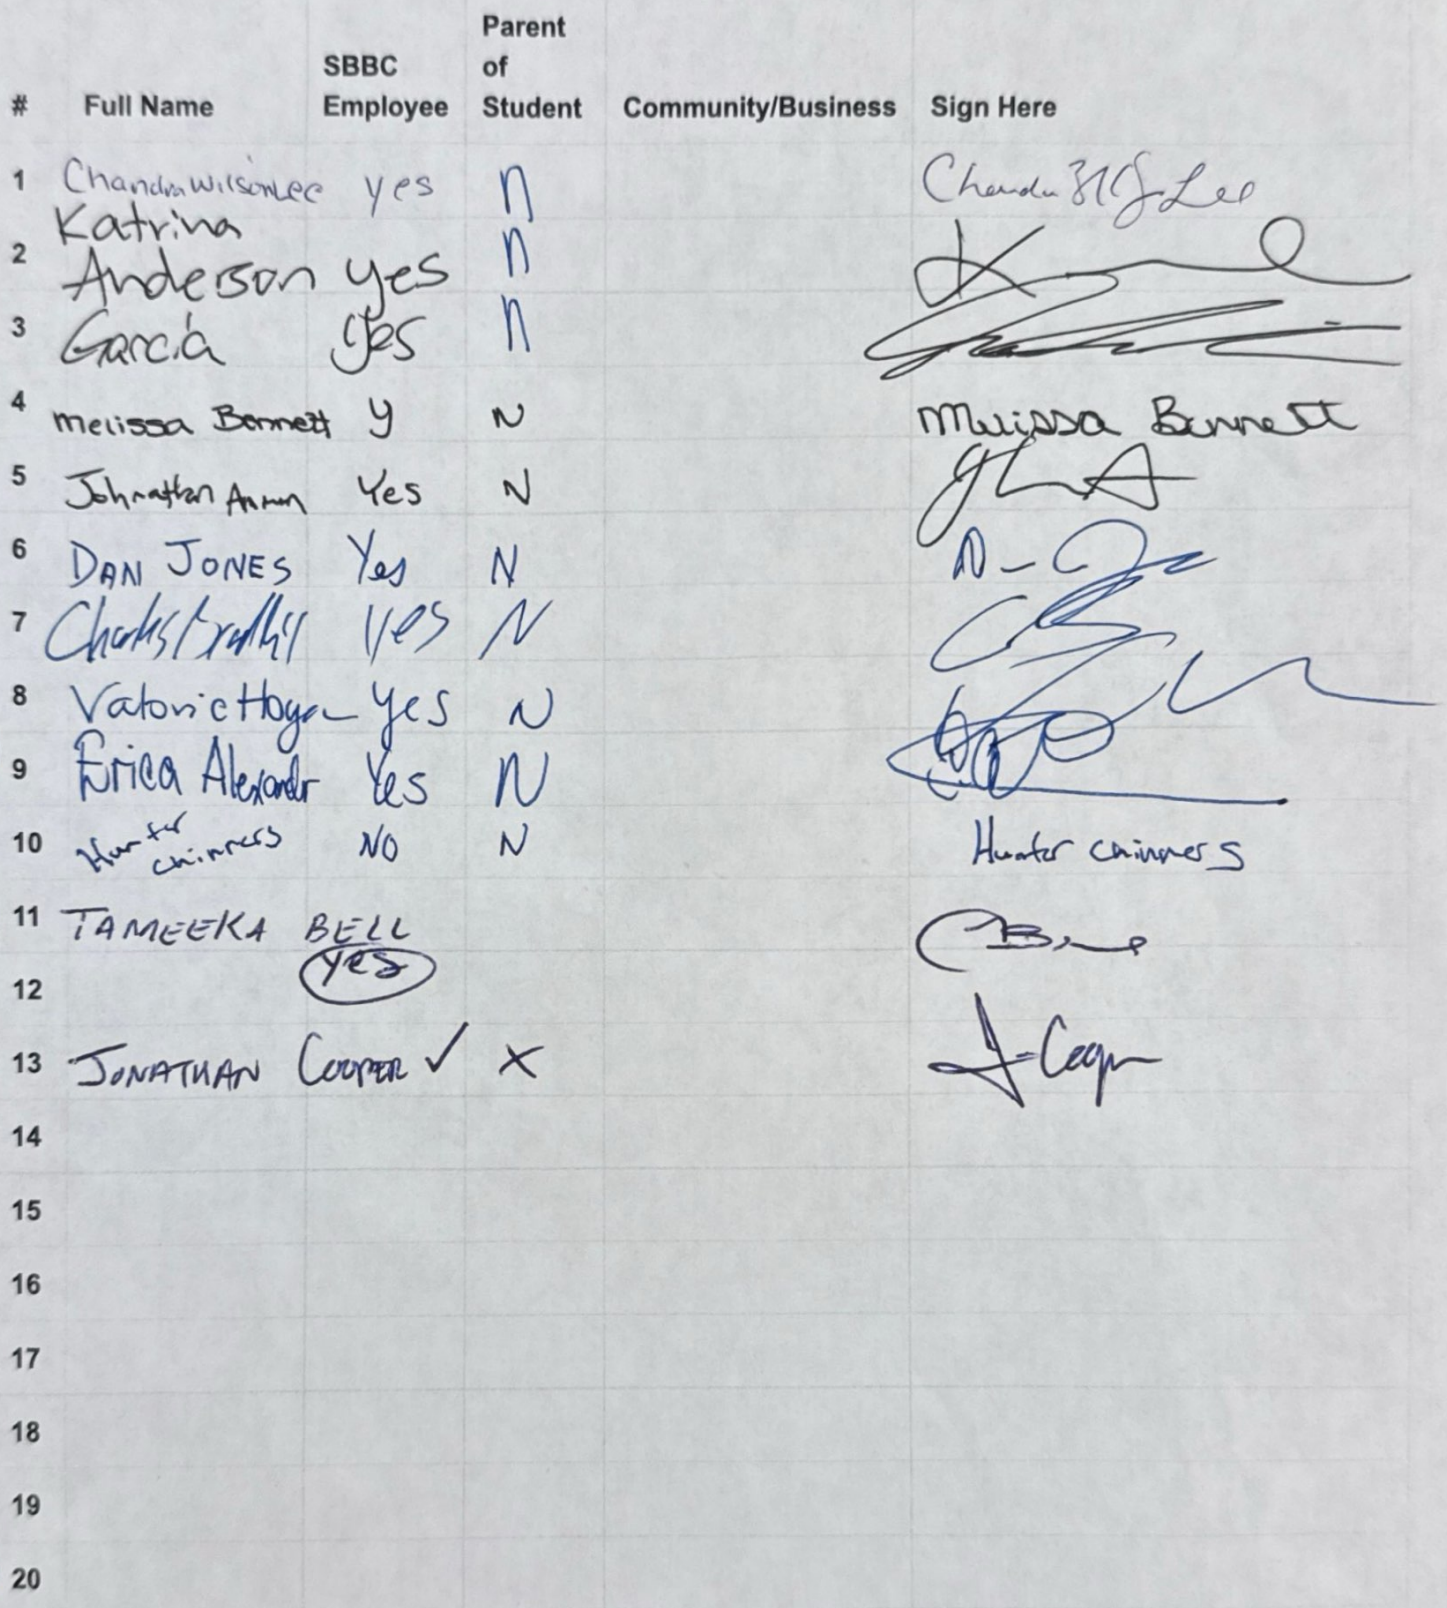 Parent
SBBC of
# Full Name Employee Student Community/Business Sign Here
1 Chandra Wilson Lee yes n Lee
Katrina
2 Anderson yes n
3 Garcia yes n
4 Melissa Bennett y N Melissa Bennett
5 Johnathan Yes N
6 DAN JONES Yes N
7 Charles Yes N
8 Vatoric Hogan Yes N
9 Erica Alexander Yes N
10 Hunter chinners NO N Hunter chinners
11 TAMEEKA BELL
12 yes
13 JONATHAN COOPER ✓ X J-Cooper
14
15
16
17
18
19
20